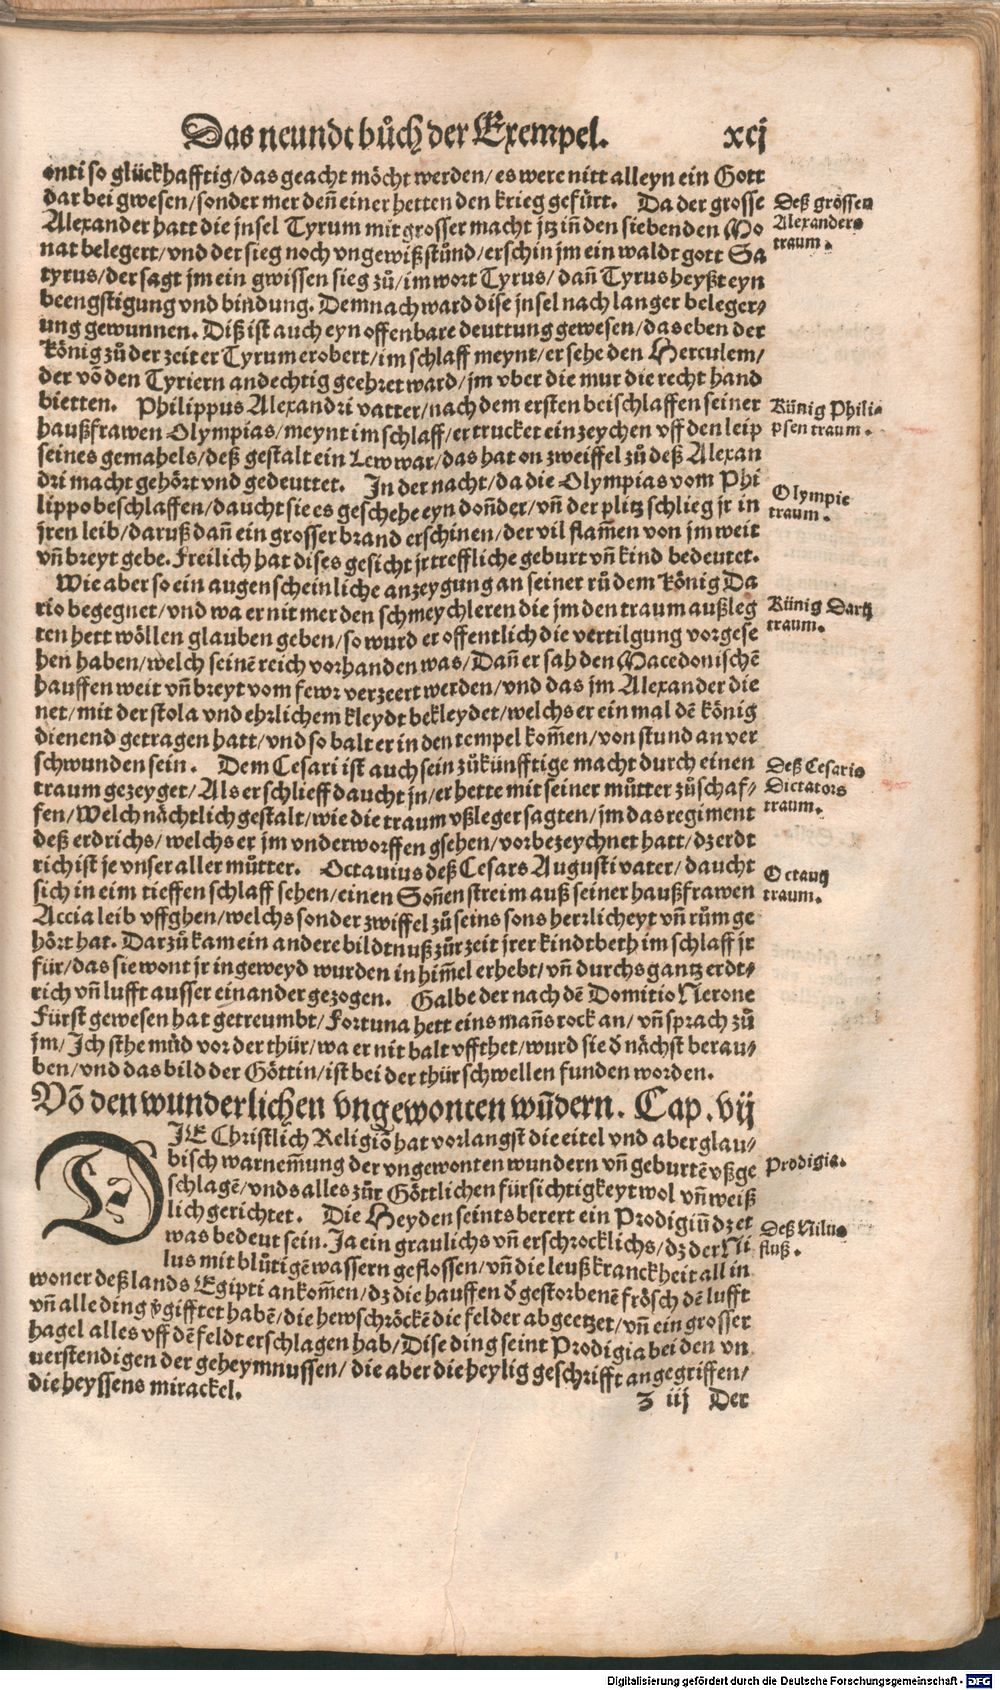 Das neundt bůch der Exempel. xcj
onti so glückhafftig/das geacht möcht werden/es were nitt alleyn ein Gott
dar bei gwesen/sonder mer deñ einer hetten den krieg gefürt. Da der grosse
Alexander hatt die jnsel Tyrum mit grosser macht jtz in den siebenden Mo
nat belegert/vnd der sieg noch vngewiß stůnd/erschin jm ein waldt gott Sa
tyrus/der sagt jm ein gwissen sieg zů/im wort Tyrus/dañ Tyrus heyßt eyn
beengstigung vnd bindung. Demnach ward dise jnsel nach langer beleger⸗
ung gewunnen. Diß ist auch eyn offenbare deuttung gewesen/das eben der
König zů der zeit er Tyrum erobert/im schlaff meynt/er sehe den Herculem/
der võ den Tyriern andechtig geehret ward/jm vber die mur die recht hand
bietten. Philippus Alexandri vatter/nach dem ersten beischlaffen seiner
haußfrawen Olympias/meynt im schlaff/er trucket ein zeychen vff den leip
seines gemahels/deß gestalt ein Lew war/das hat on zweiffel zů deß Alexan
dri macht gehört vnd gedeuttet. In der nacht/da die Olympias vom Phi
lippo beschlaffen/daucht sie es geschehe eyn doñder/vñ der plitz schlieg jr in
jren leib/daruß dañ ein grosser brand erschinen/der vil flam̃en von jm weit
vñ breyt gebe. Freilich hat dises gesicht jr treffliche geburt vñ kind bedeutet.
Wie aber so ein augenscheinliche anzeygung an seiner rů dem König Da
rio begegnet/vnd wa er nit mer den schmeychleren die jm den traum außleg
ten hett wöllen glauben geben/so wurd er offentlich die vertilgung vorgese
hen haben/welch seinẽ reich vorhanden was/Dañ er sah den Macedonischẽ
hauffen weit vñ breyt vom fewr verzeert werden/vnd das jm Alexander die
net/mit der stola vnd ehrlichem kleydt bekleydet/welchs er ein mal dẽ König
dienend getragen hatt/vnd so balt er in den tempel kom̃en/von stund an ver
schwunden sein. Dem Cesari ist auch sein zůkünfftige macht durch einen
traum gezeyget/Als er schlieff daucht jn/er hette mit seiner můtter zůschaf⸗
fen/Welch nächtlich gestalt/wie die traum vßleger sagten/jm das regiment
deß erdrichs/welchs er jm vnderworffen gsehen/vorbezeychnet hatt/dz erdt
rich ist je vnser aller můtter. Octauius deß Cesars Augusti vater/daucht
sich in eim tieffen schlaff sehen/einen Soñen streim auß seiner haußfrawen
Accia leib vffghen/welchs sonder zwiffel zů seins sons herrlicheyt vñ růmge
hört hat. Darzů kam ein andere bildtnuß zůr zeit jrer kindtbeth im schlaff jr
für/das sie wont jr ingeweyd wurden in him̃el erhebt/vñ durchs gantz erdt⸗
rich vñ lufft ausser einander gezogen. Galbe der nach dẽ Domitio Nerone
Fürst gewesen hat getreumbt/Fortuna hett eins mañs rock an/vñ sprach zů
jm/Ich sthe můd vor der thür/wa er nit balt vffthet/wurd sie d̓ nächst berau⸗
ben/vnd das bild der Göttin/ist bei der thür schwellen funden worden.
Võ den wunderlichen vngewonten wũdern. Cap. vij
DIE Christlich Religiõ hat vorlangst die eitel vnd aberglau⸗
bisch warnem̃ung der vngewonten wundern vñ geburtẽ vßge
schlagẽ/vnds alles zůr Göttlichen fürsichtigkeyt wol vñ weiß
lich gerichtet. Die Heyden seints berert ein Prodigiũ dz et
was bedeut sein. Ja ein graulichs vñ erschrocklichs/dz der Ni
lus mit blůtigẽ wassern geflossen/vñ die leuß kranckheit all in
woner deß lands Egipti ankom̃en/dz die hauffen d̓ gestorbenẽ frösch dẽ lufft
vñ alle ding v̓gifftet habẽ/die hewschröckẽ die felder abgeetzet/vñ ein grosser
hagel alles vff dẽ feldt erschlagen hab/Dise ding seint Prodigia bei den vn
uerstendigen der geheymnussen/die aber die heylig geschrifft angegriffen/
die heyssens mirackel.
z iij Der
Deß grössen
Alexanders
traum.
Künig Phili⸗
psen traum.
Olympie
traum.
Künig Darij
traum.
Deß Cesaris
Dictators
traum.
Octauij
traum.
Prodigia.
Deß Nilus
fluß.
Digitalisierung gefördert durch die Deutsche Forschungsgemeinschaft - DFG